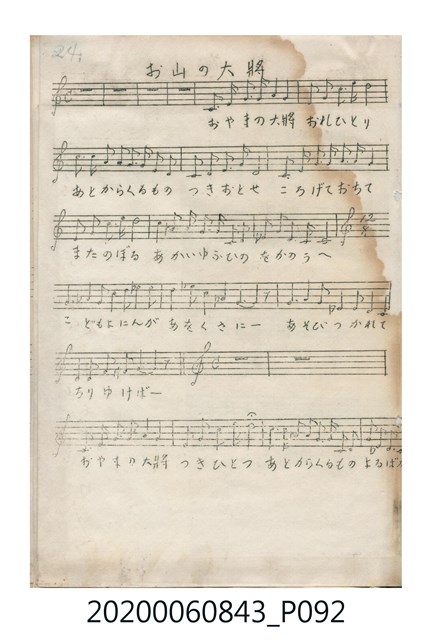 24,
お山の大將
おやまの大將 おれひとり
あとからくるもの つきおとせ ころげておちて
またのぼる あかいゆふひの をかのうへ
こどもよにんが あをくさにー あそびつかれて
ちりゆけばー
おやまの大將 つきひとつ あとからくるもの よるば
20200060843_P092